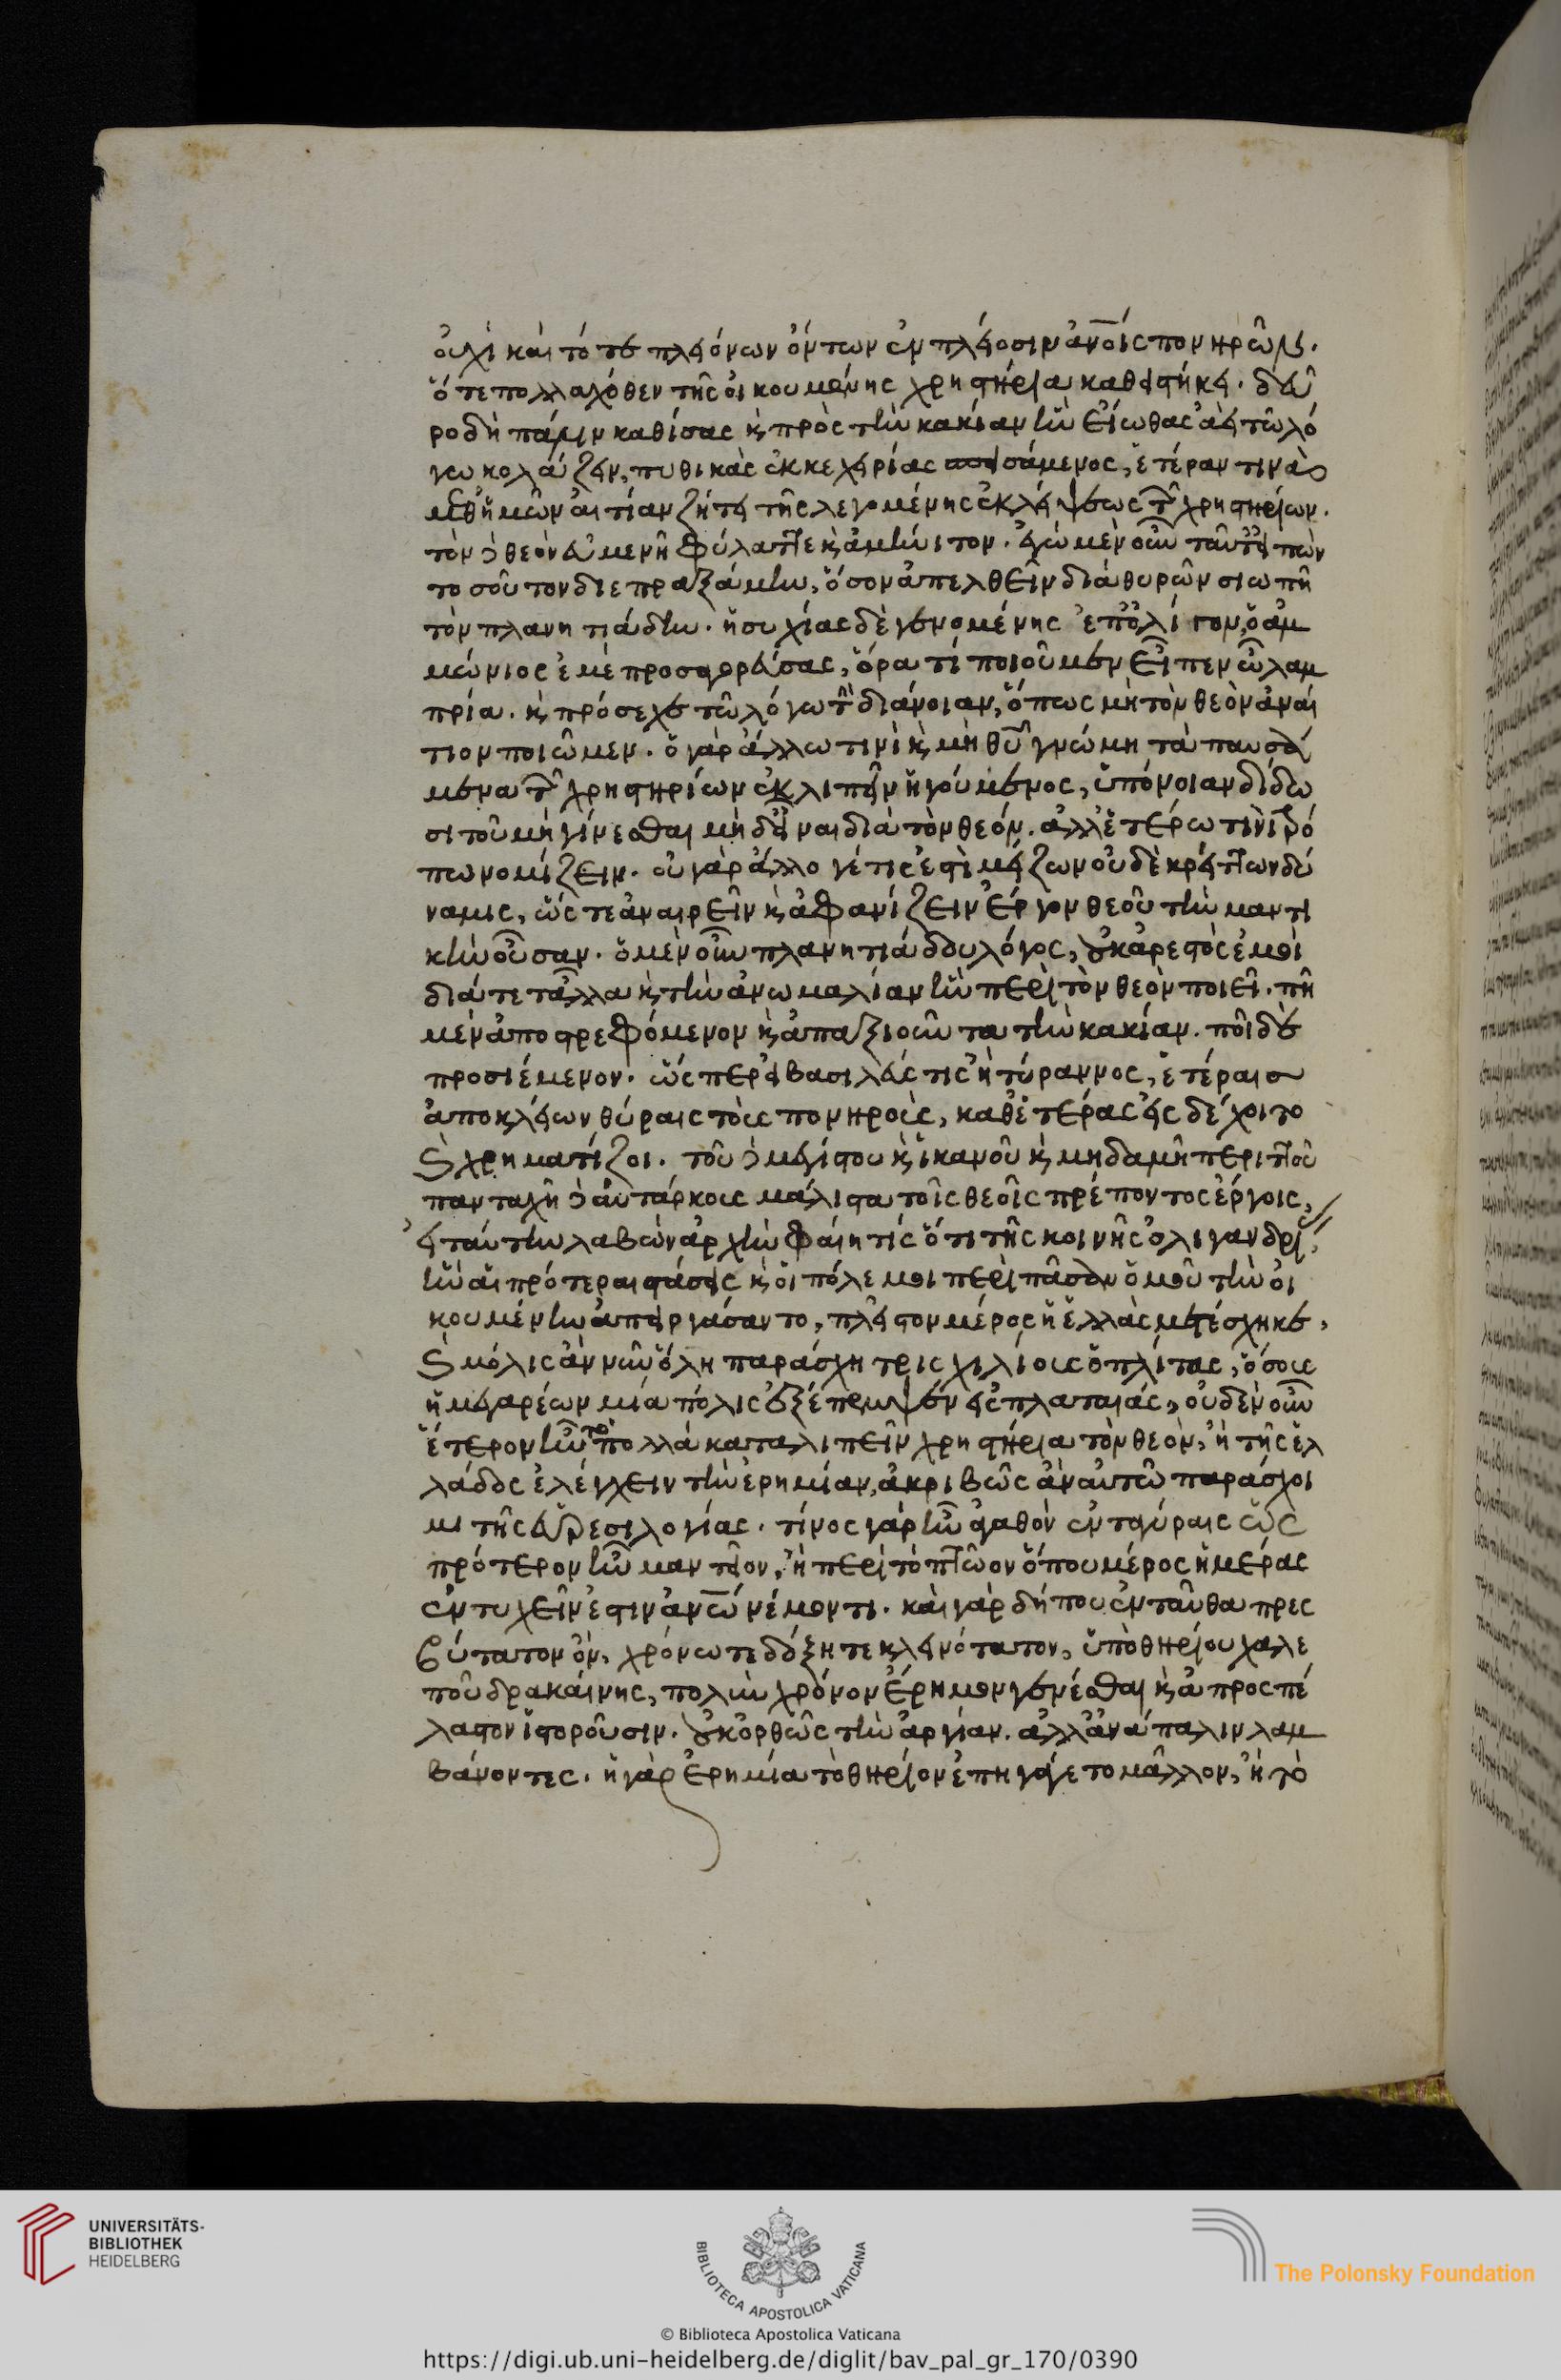 οὐχὶ καὶ τότε πλειόνων ὄντων ἐν πλείοσιν ἀνοις πονηρῶν.
ὅτε πολλαχόθεν τῆς οἰκουμένης χρηστήρια καθειστήκει. δεῦ
ρο δὴ πάλιν καθίσας κ πρὸς τὴν κακίαν ἣν εἴωθας ἀεὶ τῶ λό
γω κολάζειν, πυθικὰς ἐκκεχειρίας σάμενος, ἑτέραν τινὰ
μεθ' ἡμῶν αἰτίαν ζήτει τῆς λεγομένης ἐκλείψεως τ χρηστηρίων.
τὸν δὲ θεὸν εὐμενῆ φύλαττε κ ἀμήνιτον. ἐγὼ μὲν οὖν ταῦτ' εἰπὼν
τοσοῦτον διεπραξάμην, ὅσον ἀπελθεῖν διὰ θυρῶν σιωπῆ
τὸν πλανητιάδην. ἡσυχίας δὲ γενομένης ἐπ' ὀλίγον, ὁ ἀμ
μώνιος ἐμὲ προσαγορεύσας, ὅρα τί ποιοῦμεν εἶπεν ὦ λαμ
πρία. κ πρόσεχε τῶ λόγω τὴν διάνοιαν, ὅπως μὴ τὸν θεὸν ἀναί
τιον ποιῶμεν. ὁ γὰρ ἄλλω τινὶ κ μὴ θυ γνώμη τὰ παυσά
μενα τ χρηστηρίων ἐκλιπεῖν ἡγούμενος, ὑπόνοιαν δίδω
σι τοῦ μὴ γίνεσθαι μὴ δ' εἶναι διὰ τὸν θεόν. ἀλλ' ἑτέρω τινὶ τρό
πω νομίζειν. οὐ γὰρ ἄλλο γέ τις ἐστὶ μείζων οὐδὲ κρείττων δύ
ναμις, ὥστε ἀναιρεῖν κ ἀφανίζειν ἔργον θεοῦ τὴν μαντι
κὴν οὖσαν. ὁ μὲν οὖν πλανητιάδου λόγος, οὐκ ἀρεστὸς ἐμοὶ
διά τε τἆλλα κ τὴν ἀνωμαλίαν ἣν περὶ τὸν θεὸν ποιεῖ. πῆ
μὲν ἀποστρεφόμενον κ ἀπαξιοῦντα τὴν κακίαν. ποῖ δὲ
προσιέμενον. ὥσπερ εἰ βασιλεύς τις ἢ τύραννος, ἑτέραισ
ἀποκλείων θύραις τοὺς πονηροὺς, καθ' ἑτέρας εἰσδέχοιτο
κ χρηματίζοι. τοῦ δὲ μεγίστου κ ἱκανοῦ κ μηδαμῆ περιττοῦ
πανταχῆ δ' αὐτάρκους μάλιστα τοῖς θεοῖς πρέποντος ἔργοις,
εἰ ταύτην λαβὼν ἀρχὴν φαίη τίς ὅτι τῆς κοινῆς ὀλιγανδρί,
ἣν αἱ πρότεραι στάσεις κ οἱ πόλεμοι περὶ πᾶσαν ὁμοῦ τὴν οἰ
κουμένην ἀπειργάσαντο, πλεῖστον μέρος ἡ ἑλλὰς μετέσχηκε,
κ μόλις ἂν νῦν ὅλη παράσχη τρισχιλίους ὁπλίτας, ὅσους
ἡ μεγαρέων μία πόλις ἐξέπεμψεν εἰς πλαταιάς, οὐδὲν οὖν
ἕτερον ἦν τὸ πολλὰ καταλιπεῖν χρηστήρια τὸν θεὸν, ἢ τῆς ἑλ
λάδος ἐλέγχειν τὴν ἐρημίαν, ἀκριβῶς ἂν αὐτῶ παράσχοι
μι τῆς εὑρεσιλογίας. τίνος γὰρ ἦν ἀγαθὸν ἐν τεγύραις ὡς
πρότερον ἦν μαντεῖον, ἢ περὶ τὸ πτῶον ὅπου μέρος ἡμέρας
ἐντυχεῖν ἔστιν ἀνω νέμοντι. καὶ γὰρ δήπου ἐνταῦθα πρεσ
βύτατον ὂν, χρόνω τε δόξη τε κλεινότατον, ὑπὸ θηρίου χαλε
ποῦ δρακαίνης, πολὺν χρόνον ἔρημον γενέσθαι κ ἀπροσπέ
λαστον ἱστοροῦσιν. οὐκ ὀρθῶς τὴν ἀργίαν. ἀλλ' ἀνάπαλιν λαμ
βάνοντες. ἡ γὰρ ἐρημία τὸ θηρίον ἐπηγάγετο μᾶλλον, ἢ τὸ
UNIVERSITÄTS-
BIBLIOTHEK
HEIDELBERG
BIBLIOTECA APOSTOLICA VATICANA
The Polonsky Foundation
© Biblioteca Apostolica Vaticana
https://digi.ub.uni-heidelberg.de/diglit/bav_pal_gr_170/0390